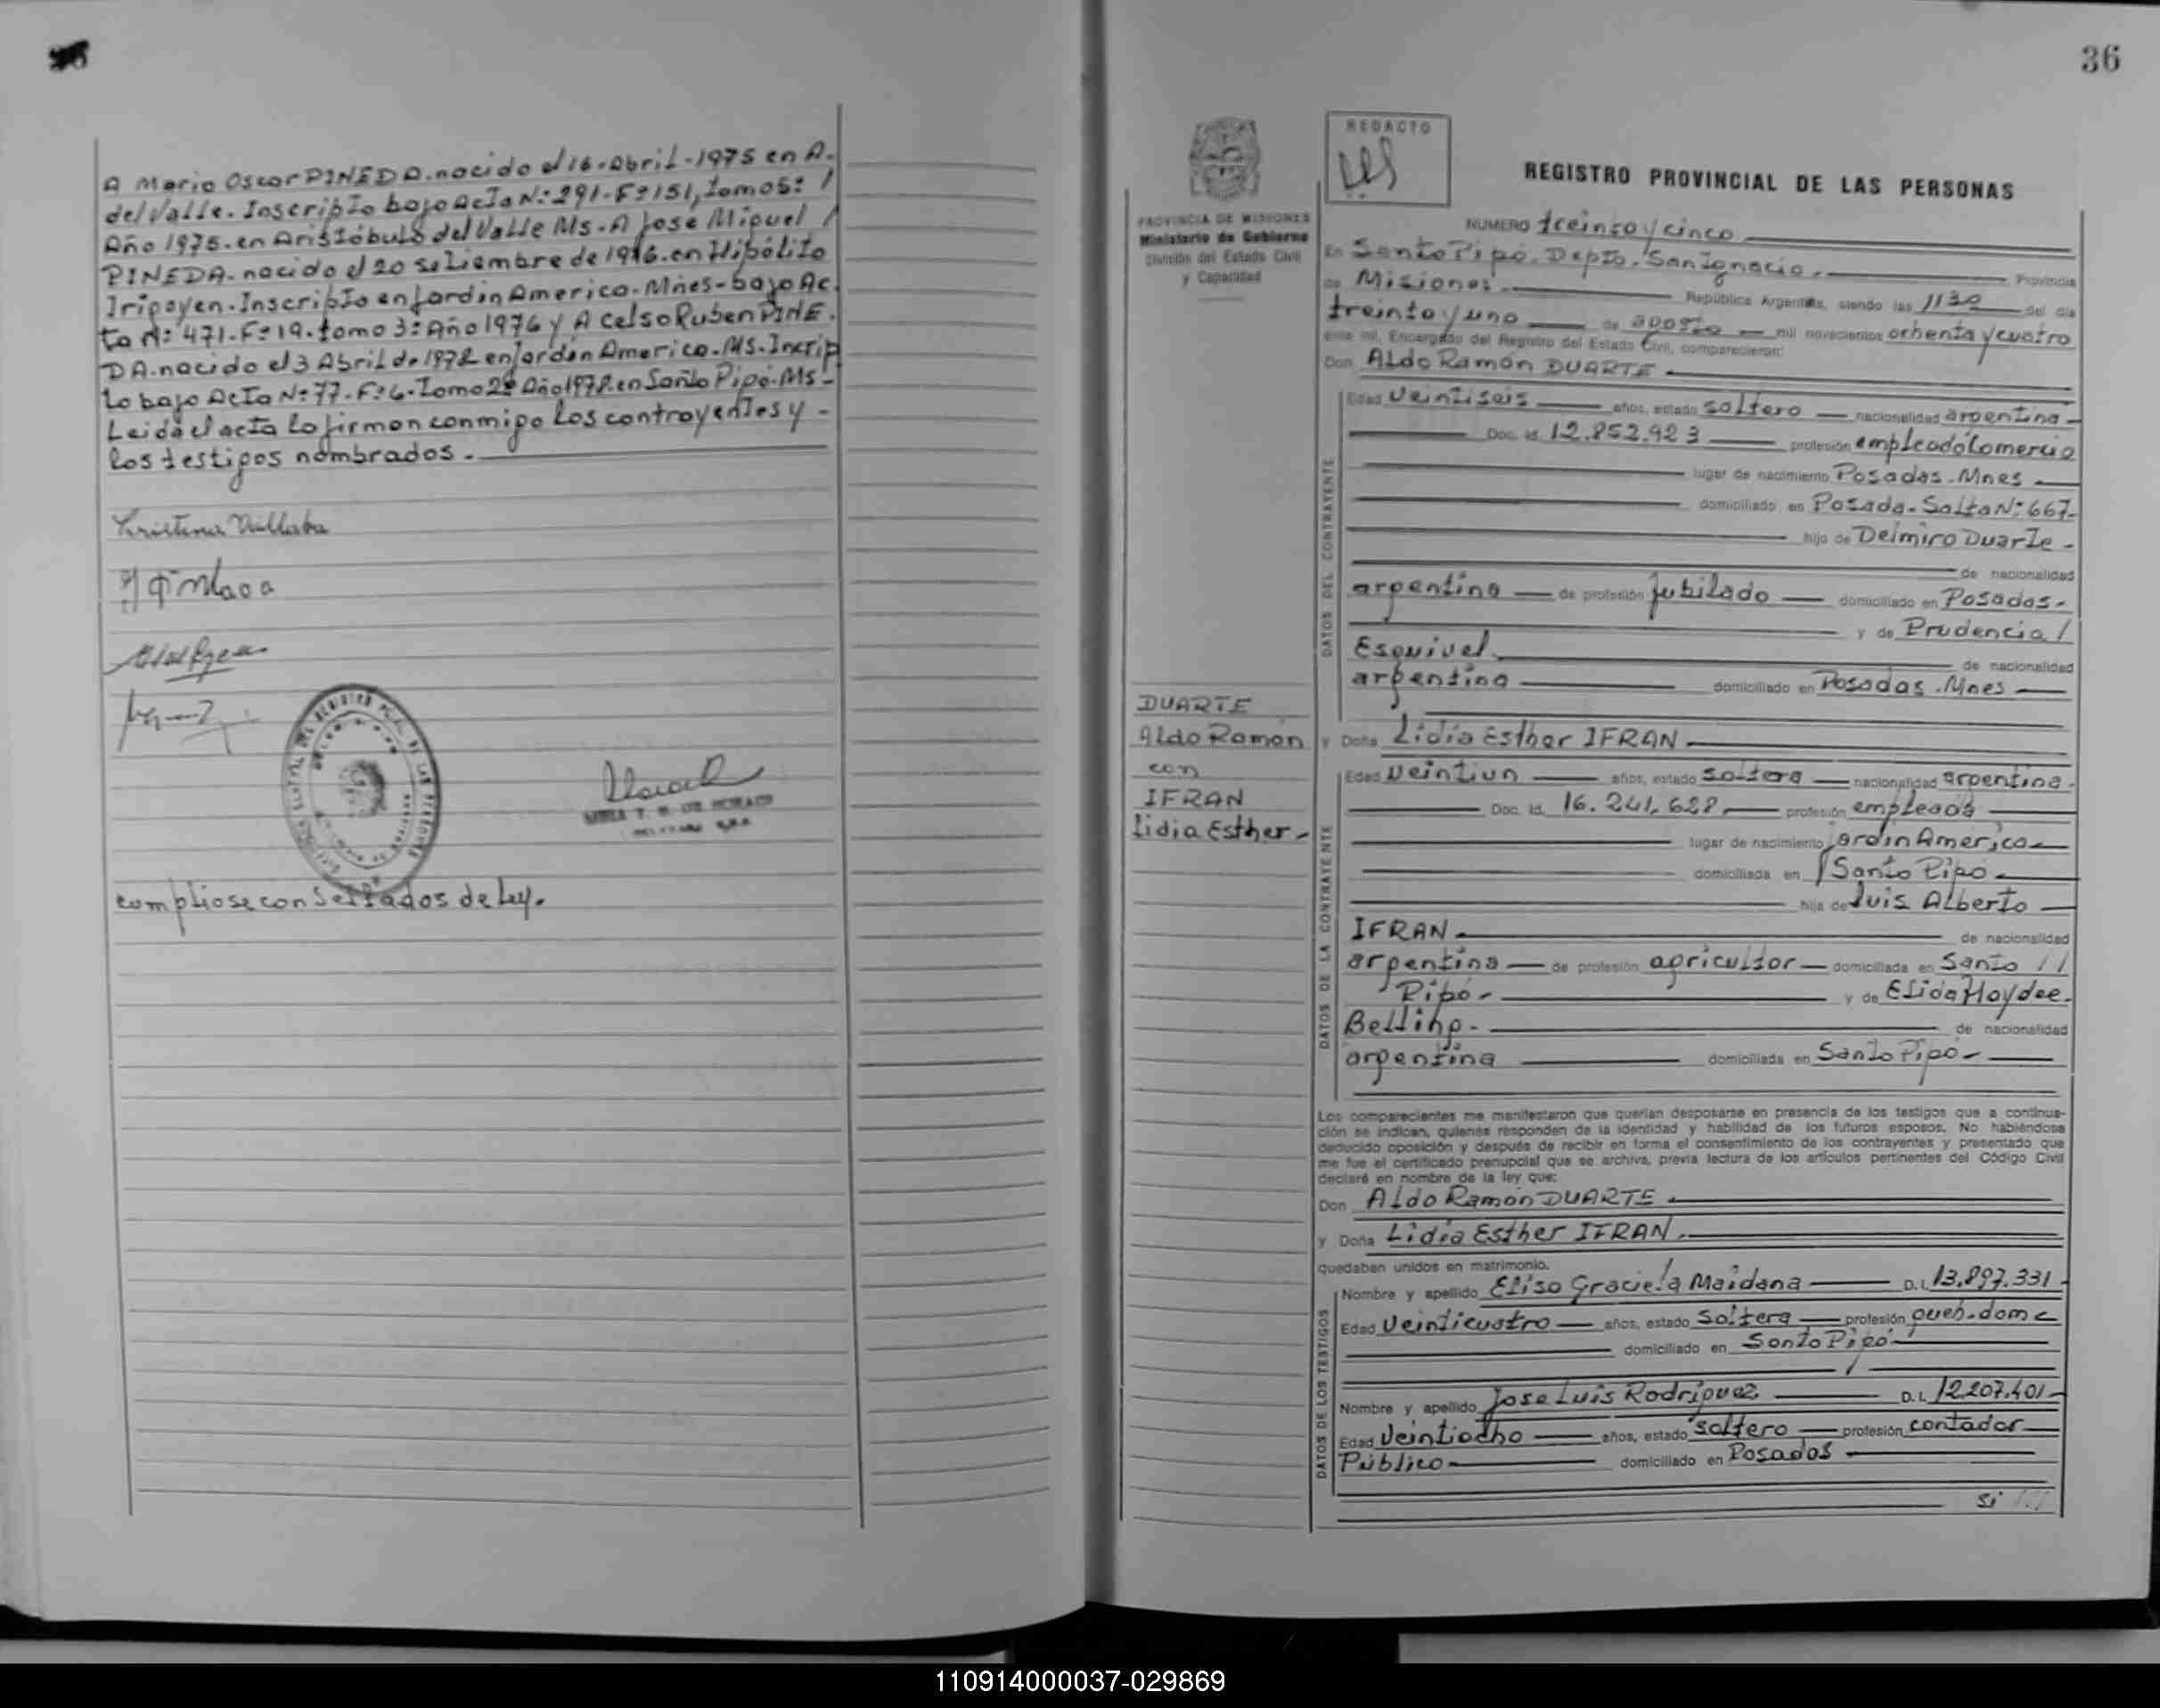 A Mario Oscar PINEDA. nacido el 16-Abril-1975 en A.
del Valle. Inscripto bajo Acta N: 291-Fº151, tomo 5: /
Año 1975. en Aristóbulo del Valle Ms-A Jose Miguel /
PINEDA. nacido el 20 setiembre de 1976. en Hipólito
Irigoyen. Inscripto en Jardin America-Mnes-bajo Ac.
ta N: 471-Fº19. tomo 3: Año 1976 y A Celso Ruben PINE.
DA. nacido el 3 Abril de 1978 en Jardin America. MS. Incrip
to bajo Acta N: 77. Fº6. Tomo 2º Año 1978. en Santo Pipó. Ms-
Leida el acta lo firman conmigo los contrayentes y -
los testigos nombrados.
Kristina Villaba
cumpliose con sellados de Ley.
36
PROVINCIA DE MISIONES
Ministerio de Gobierno
División del Estado Civil
y Capacidad
REDACTO
REGISTRO PROVINCIAL DE LAS PERSONAS
NUMERO treinta y cinco
En Santo Pipó. Depto. San Ignacio. Provincia
de Misiones. República Argentina, siendo las 1130 del día
treinta y uno de agosto mil novecientos ochenta y cuatro
ante mí, Encargado del Registro del Estado Civil, comparecieron:
Don Aldo Ramón DUARTE
DATOS DEL CONTRAYENTE
Edad Veintiseis años, estado soltero nacionalidad argentina
Doc. Id. 12.852.923 profesión empleado Comercio
lugar de nacimiento Posadas. Mnes
domiciliado en Posada. Salta N: 667-
hijo de Delmiro Duarte -
de nacionalidad
argentina de profesión Jubilado domiciliado en Posadas-
y de Prudencia /
Esquivel. de nacionalidad
argentina domiciliado en Posadas. Mnes
DUARTE
Aldo Ramon
con
IFRAN
Lidia Esther-
y Doña Lidia Esther IFRAN
DATOS DE LA CONTRAYENTE
Edad Veintiun años, estado soltera nacionalidad argentina.
Doc. Id. 16.241.628 profesión empleada
lugar de nacimiento Jardin America
domiciliada en Santo Pipó
hija de Luis Alberto
IFRAN. de nacionalidad
argentina de profesión agricultor domiciliada en Santo //
Pipó- y de Elida Haydee.
de nacionalidad
argentina domiciliada en Santo Pipó-
Los comparecientes me manifestaron que querían desposarse en presencia de los testigos que a continua-
ción se indican, quienes responden de la identidad y habilidad de los futuros esposos. No habiéndose
deducido oposición y después de recibir en forma el consentimiento de los contrayentes y presentado que
me fue el certificado prenupcial que se archiva, previa lectura de los artículos pertinentes del Código Civil
declaré en nombre de la ley que:
Don Aldo Ramón DUARTE
y Doña Lidia Esther IFRAN.
quedaban unidos en matrimonio.
DATOS DE LOS TESTIGOS
Nombre y apellido Elisa Graciela Maidana D.I. 13.897.331
Edad Veinticuatro años, estado soltera profesión queh. dom
domiciliado en Santo Pipó
Nombre y apellido Jose Luis Rodriguez D.I. 12.207.401
Edad Veintiocho años, estado soltero profesión contador
Público domiciliado en Posadas
Si ///
110914000037-029869